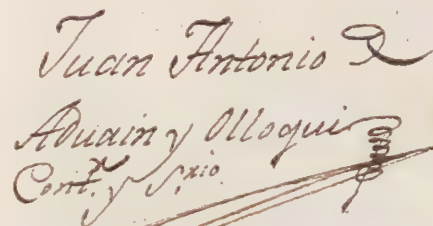 Juan Antonio
Aduain y Olloqui
Cont.r y S.rio